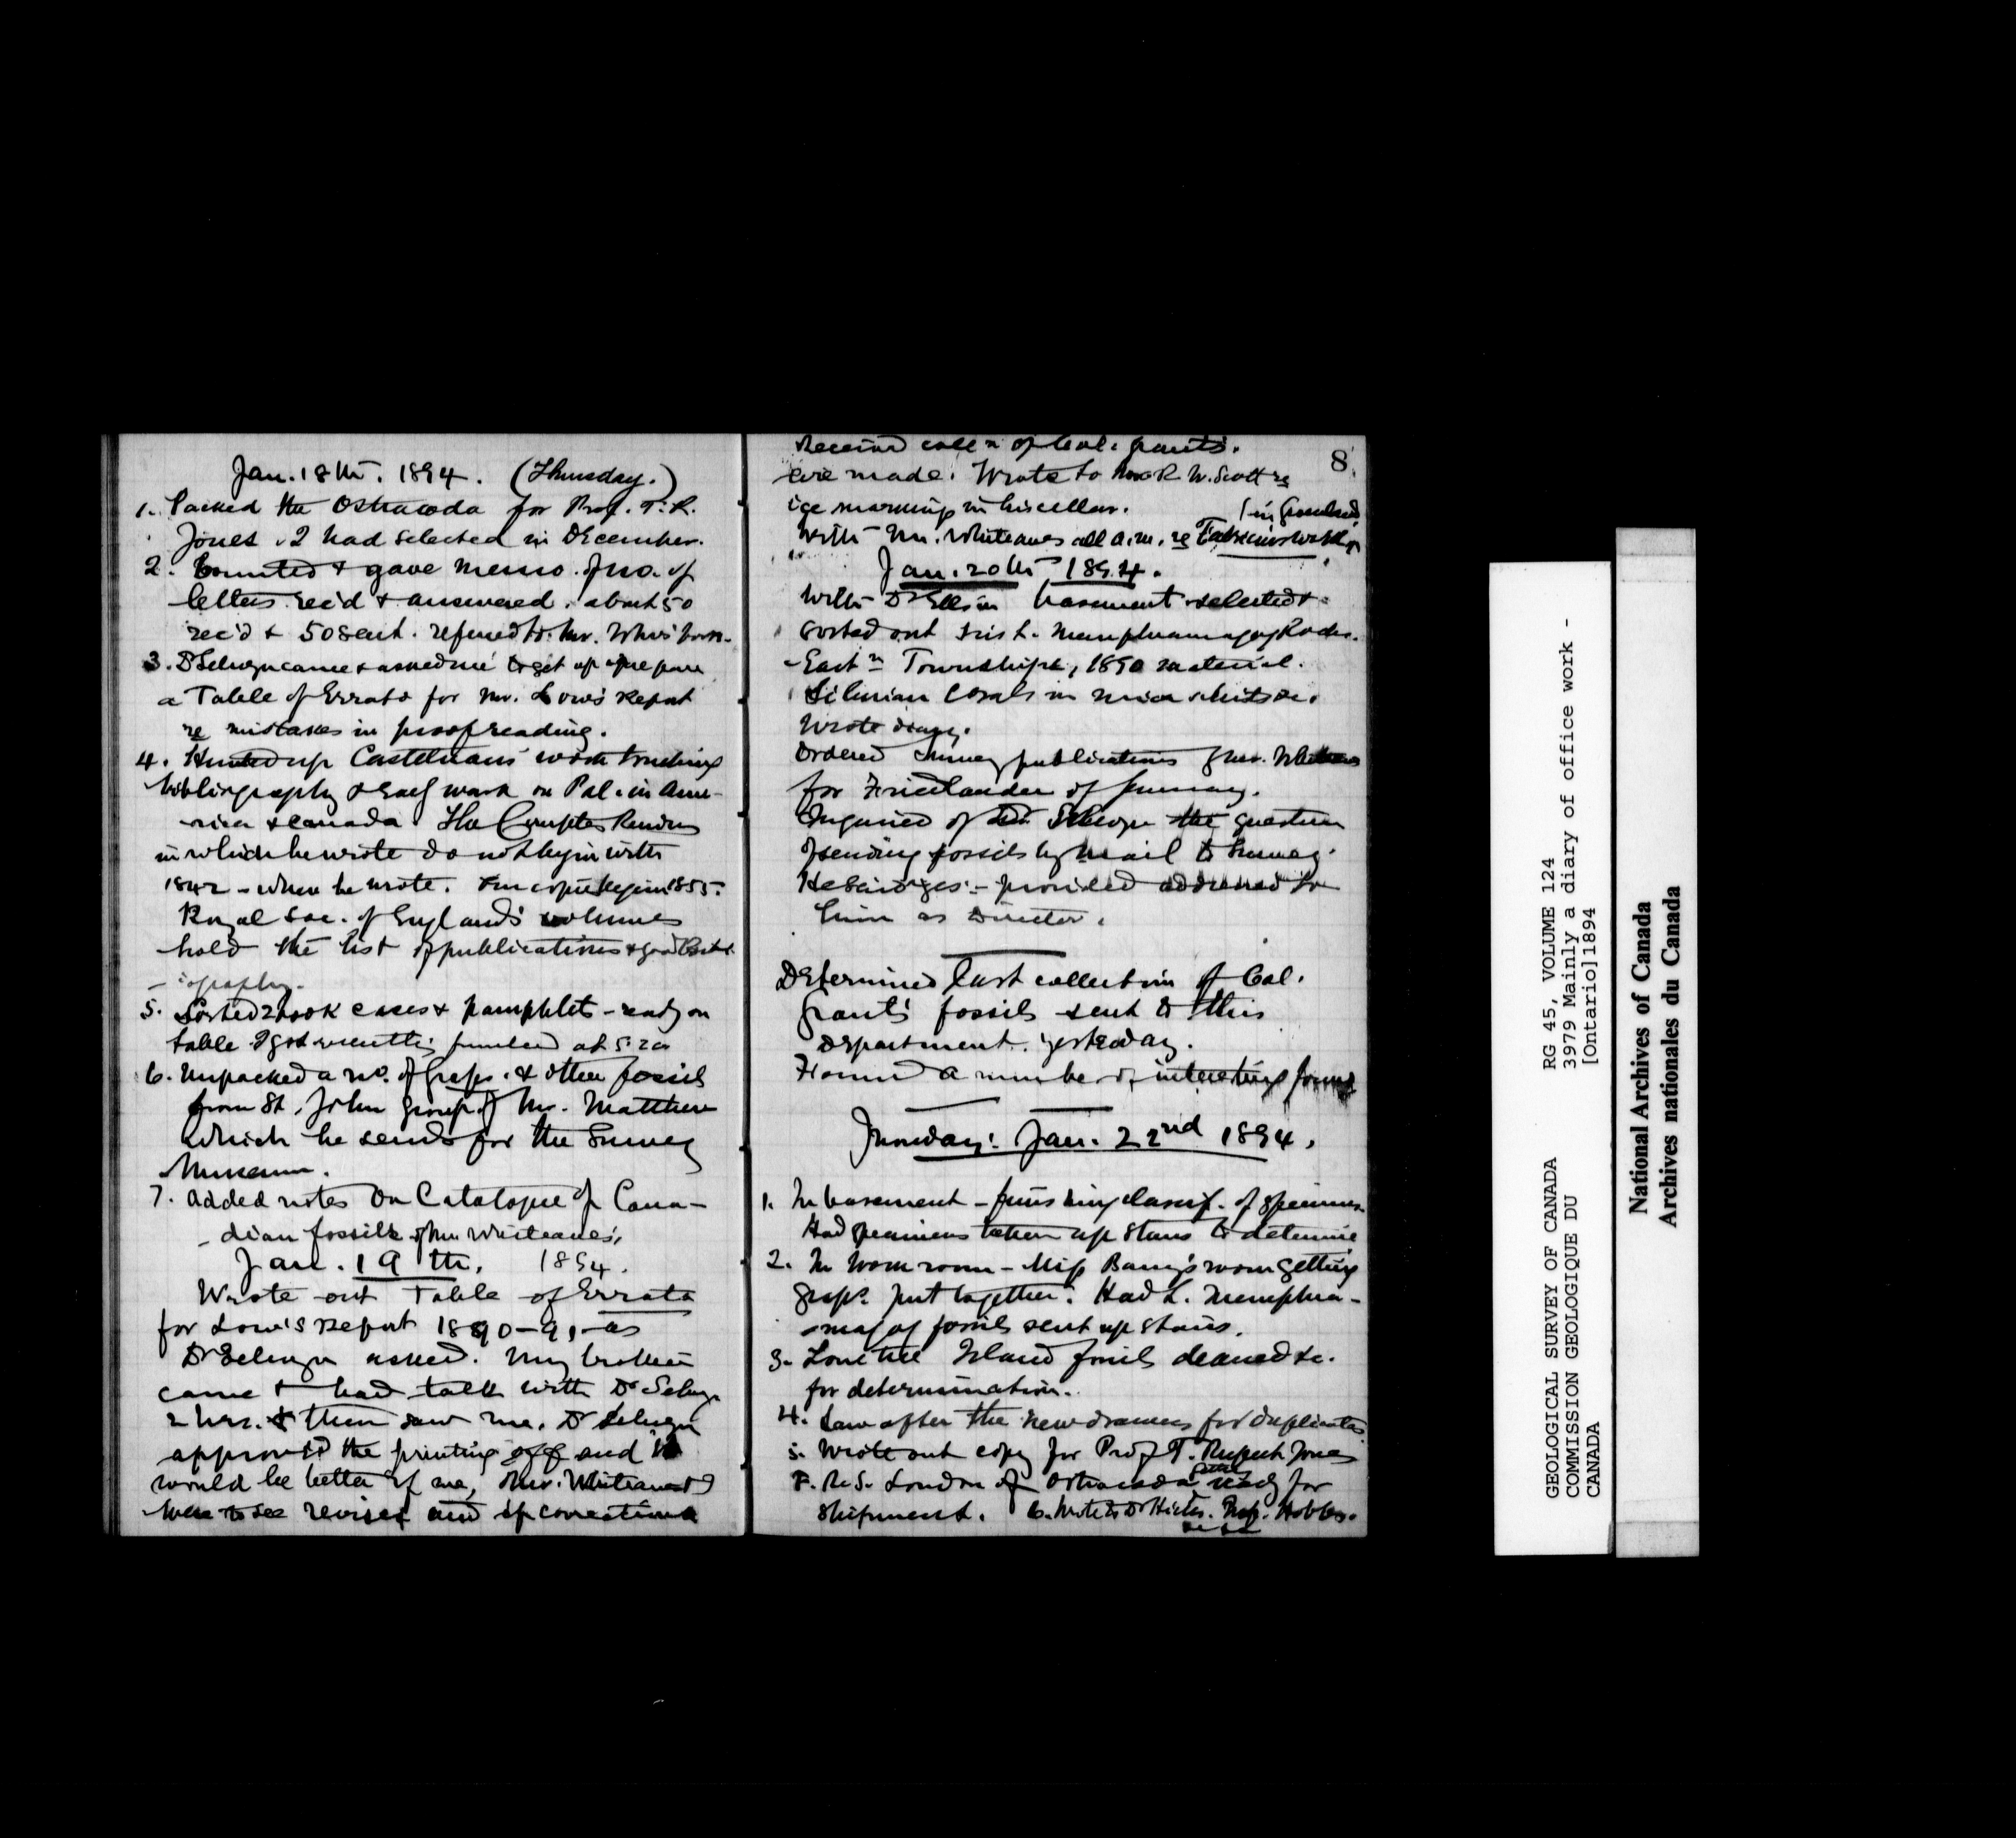 Jan. 18th. 1894. (Thursday.)
1. Packed the Ostracoda for Prof. T. R.
Jones. I had selected in December.
2. Counted & gave memo. of no. of
letters rec'd & answered. about 50
rec'd & 50 sent. referred to. Mr.
3. Dr Selwyn came & asked me to get up & prepare
a Table of Errata for Mr. Low's Report
re mistakes in proof reading.
4. Hunted up Castelnau's work touching
bibliography & early work on Pal. in Ame-
rica & Canada. The Comptes Rendus
in which he wrote do not begin with
1842 - when he wrote. Our copies begin 1855.
Royal Soc. of England's volumes
hold the list of publications & good Bibl-
-iography.
5. Sorted 2 book cases & pamphlets - ready on
table I got recently; finished at 5.20
6. Unpacked a no. of Graps. & other fossils
from St. John group of Mr. Matthew
which he sends for the Survey
Museum.
7. Added notes on Catalogue of Cana-
-dian fossils of Mr Whiteaves.
Jan. 19th. 1894.
Wrote out Table of Errata
for Low's Report 1890-91 - as
Dr Selwyn asked. My brother
came & had talk with Dr Selwyn
2 hrs. & then saw me. Dr Selwyn
approved the printing off and
would be better if me, Mr. Whiteaves &
were to see revises and if corrections
8.
Received coll'n of Col. Grant's.
are made. Wrote to Hon R. W. Scott re
ice marking in his cellar.
with Mr. Whiteaves all a.m. re
Jan. 20th 1894.
With Dr Ells in basement selected &
sorted out L. Memphremagog Rocks.
East'n Townships, 1890 material.
Silurian Corals in mica schists &c.
Wrote diary.
Ordered Survey publications of Mr. Whiteaves
for Friedlander of Germany.
Inquired of Dr. Selwyn the question
of sending fossils by mail to Survey.
He said yes: - provided addressed to
him as Director.
Determined last collection of Col.
Grant's fossils sent to this
Department. yesterday.
Found a number of interesting forms
Monday: Jan. 22nd 1894.
1. In basement - finishing classif. of specimens.
Had specimens taken up stairs to determine
2. In work room - Miss Barry's room getting
Graps. put together. Had L. Memphre-
-magog fossils sent up stairs.
3. Island fossils cleaned &c.
for determination.
4. Saw after the new drawers for duplicates
5. Wrote out copy for Prof T. Rupert Jones
F.R.S. London of Ostracoda ready for
shipment. 6. Wrote to Dr Hicks. Prof. Hobbs.
GEOLOGICAL SURVEY OF CANADA
COMMISSION GEOLOGIQUE DU
CANADA
RG 45, VOLUME 124
3979 Mainly a diary of office work -
[Ontario]1894
National Archives of Canada
Archives nationales du Canada